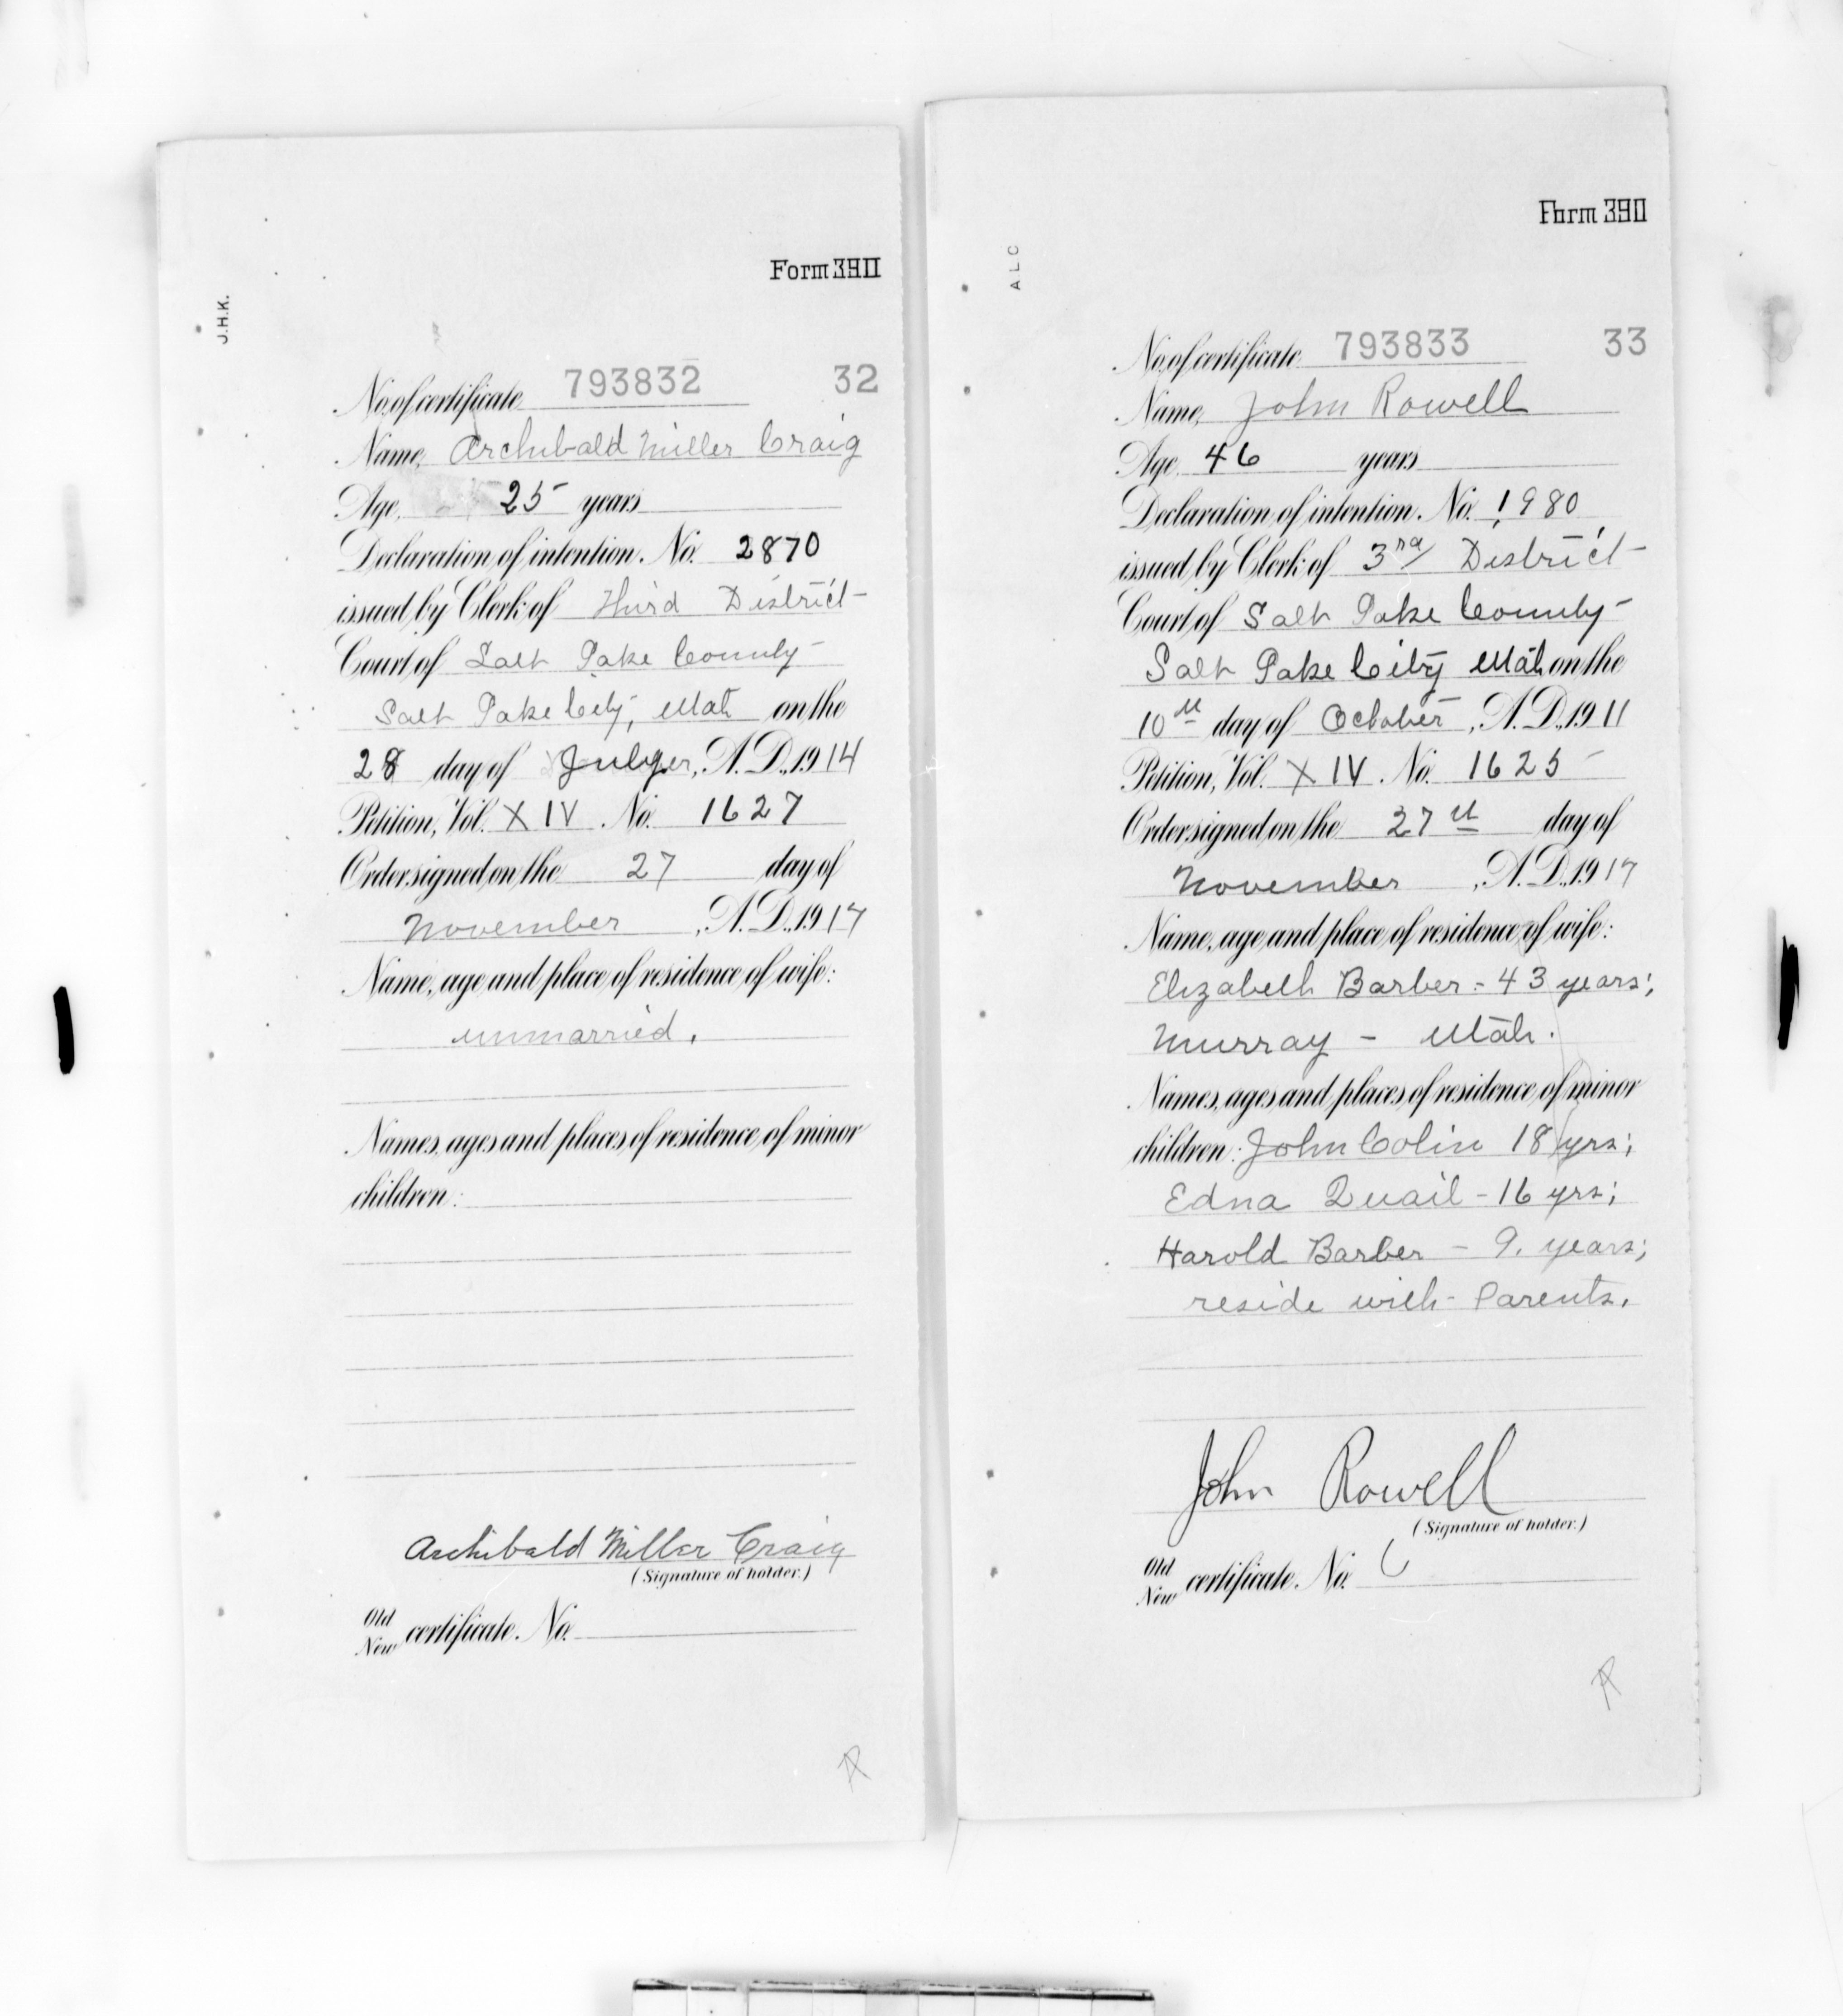 Form 390
J.H.K.
No. of certificate 793832 32
Name, Archibald Miller Craig
Age, 25 years
Declaration of intention. No. 2870
issued by Clerk of Third District
Court of Salt Lake County
Salt Lake City, Utah on the
28 day of July, A.D., 1914
Petition, Vol. XIV. No. 1627
Order signed on the 27 day of
November, A.D., 1917
Name, age and place of residence of wife:
unmarried.
Names, ages and places of residence of minor
children:
Archibald Miller Craig
(Signature of holder.)
Old
New certificate. No.
Form 390
ALC
No. of certificate 793833 33
Name, John Rowell
Age, 46 years
Declaration of intention. No. 1980
issued by Clerk of 3rd District
Court of Salt Lake County
Salt Lake City Utah on the
10th day of October, A.D., 1911
Petition, Vol. XIV. No. 1625
Order signed on the 27th day of
November, A.D., 1917
Name, age and place of residence of wife:
Elizabeth Barber - 43 years;
Murray - Utah.
Names, ages and places of residence of minor
children: John Colin 18 yrs;
Edna Quail - 16 yrs;
Harold Barber - 9. years;
reside with Parents.
John Rowell
(Signature of holder.)
Old
New certificate. No.